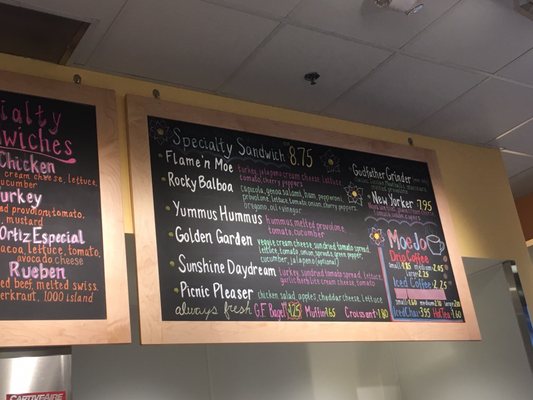 Specialty
Sandwiches
Chicken
cream cheese, lettuce,
cucumber
Turkey
provolone, tomato,
mustard
Ortiz Especial
lettuce, tomato,
jalapeno
Rueben
beef, melted swiss,
sauerkraut, 1000 island
CAPTIVEAIRE
Specialty Sandwich 8.75
Flame'n Moe turkey, jalapeno cream cheese, lettuce
tomato, cherry peppers
Rocky Balboa capicola, genoa salami, ham, pepperoni,
provolone, lettuce, tomato, onion, cherry peppers
oregano, oil + vinegar
Yummus Hummus hummus, melted provolone,
tomato, cucumber
Golden Garden veggie cream cheese, sundried tomato spread,
lettuce, tomato, onion, sprouts, green pepper,
cucumber, jalapeno (optional)
Sunshine Daydream turkey, sundried tomato spread,
garlic herb cream cheese, tomato
Picnic Pleaser chicken salad, apples, cheddar cheese, lettuce
always fresh G.F. Bagel 4.25 Muffin 1.65 Croissant 1.80
Godfather Grinder
New Yorker 7.95
Moe Joe
Drip Coffee
small 1.85 medium 2.05
large 2.25
Iced Coffee
small medium
large
Iced Chai 3.95 Hot Tea 1.60